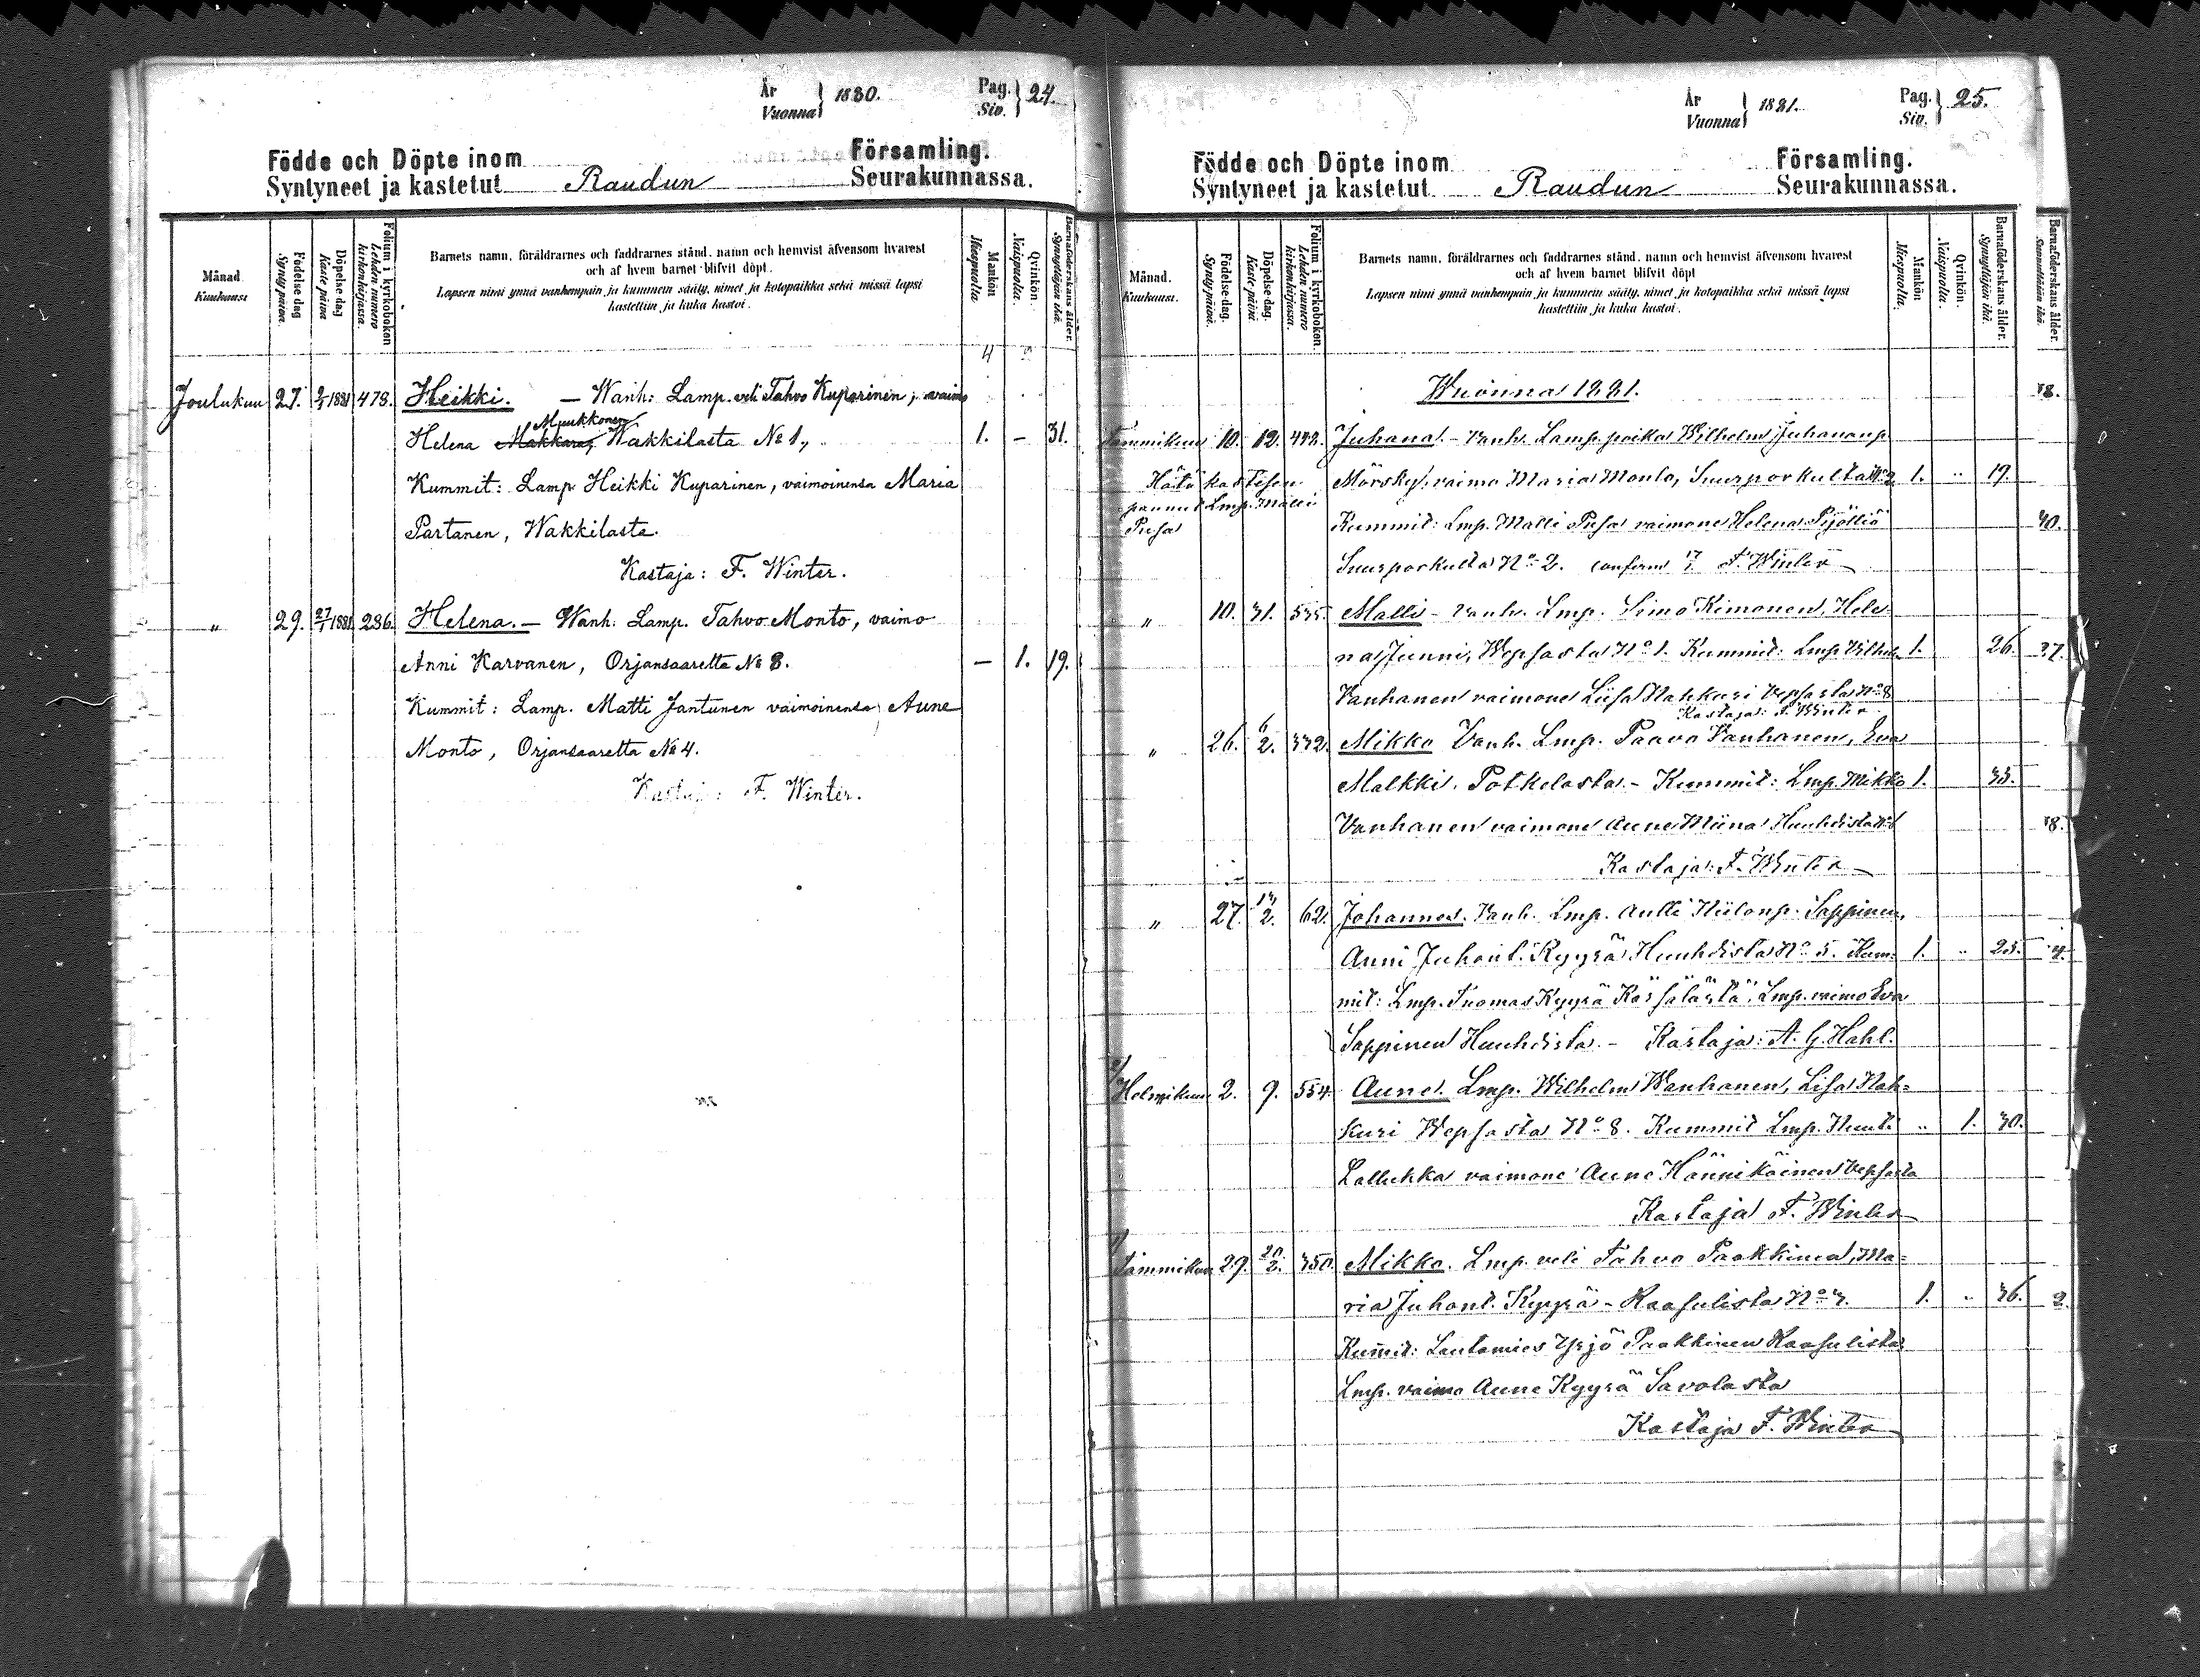 År
Vuonna } 1880.
Pag.
Siv. } 24.
Födde och Döpte inom Församling.
Syntyneet ja kastetut Raudun Seurakunnassa.
Månad.
Kuukausi.
Födelse dag
Synty päivä.
Döpelse dag
Kaste päivä
Folium i kyrkoboken
Lehden numero kirkonkirjassa.
Barnets namn, föräldrarnes och faddrarnes stånd, namn och hemvist äfvensom hvarest
och af hvem barnet blifvit döpt.
Lapsen nimi ynnä vanhempain ja kummein sääty, nimet ja kotopaikka sekä missä lapsi
kastettiin ja kuka kastoi.
Mankön
Miespuolta.
Qvinkön.
Naispuolta.
Barnaföderskans ålder.
Synnyttäjän ikä.
4
Joulukuu 27. 2/1 1881 478. Heikki. — Wanh: Lamp. veli Tahvo Kuparinen, j. vaimo
Muukkonen
Helena Makkara, Wakkilasta № 1., 1. — 31.
Kummit: Lamp Heikki Kuparinen, vaimoinensa Maria
Partanen, Wakkilasta.
Kastaja: F. Winter.
„ 29. 27/1 1881. 286. Helena. — Wanh: Lamp. Tahvo Monto, vaimo
Anni Karvanen, Orjansaarelta № 8. — 1. 19.
Kummit: Lamp. Matti Jantunen vaimoinensa Aune
Monto, Orjansaarelta № 4.
Kastaja: F. Winter.
År
Vuonna } 1881.
Pag.
Siv. } 25.
Födde och Döpte inom Församling.
Syntyneet ja kastetut Raudun Seurakunnassa.
Månad.
Kuukausi.
Födelse dag.
Synty päivä.
Döpelse dag.
Kaste päivä
Folium i kyrkoboken.
Lehden numero kirkonkirjassa.
Barnets namn, föräldrarnes och faddrarnes stånd, namn och hemvist äfvensom hvarest
och af hvem barnet blifvit döpt
Lapsen nimi ynnä vanhempain ja kummein sääty, nimet ja kotopaikka sekä missä lapsi
kastettiin ja kuka kastoi.
Mankön
Miespuolta.
Qvinkön.
Naispuolta.
Barnaföderskans ålder.
Synnyttäjän ikä.
Barnaföderskans ålder.
Wuonna 1881.
Tammikuu 10. 12. 442. Juhana. – Vanh. Lamp. poika Wilhelm Juhananp
Hätäkasteen Mörsky, vaimo Maria Monto, Suurporkulta № 2 1. „ 19.
pannut Lmp. Matti
Pusa Kummit: Lmp. Matti Pusa vaimone Helena Pyölliä 40.
Suurporkulta No 2. confirm F. Winter
„ 10. 31. 535. Matti – Vanh. Lmp. Simo Kimonen, Hele-
na Junni, Wepsasta No 1. Kummit: Lmp. Vilhelm 1. 26. 27.
Vanhanen vaimone Liisa Nahkuri Vepsasta No 8
Kastaja: F. Winter
„ 26. 6/2. 332. Mikko Vanh. Lmp. Paavo Vanhanen, Eva
Malkki. Potkelasta. – Kummit: Lmp. Mikko 1. 33.
Vanhanen vaimone Aune Miina Huuhdista
Kastaja: F. Winter
„ 27. 62. Johannes. Vanh. Lmp. Antti Niilonp. Sappinen,
Anni Juhont. Kyyrä Huuhdista No 5. Kum- 1. „ 25.
mit: Lmp. Tuomas Kyyrä Kärsälästä, Lmp. vaimo Eva
Sappinen Huuhdista. – Kastaja: A. G. Hahl.
Helmikuu 2. 9. 554. Aune. Lmp. Wilhelm Wanhanen, Lisa Nah=
kuri Wepsasta No 8. Kummit Lmp. Nuuti „ 1. 30.
Lallukka vaimone Aune Hännikäinen Vepsasta
Kastaja F. Winter
Tammikuu 29. 20/2. 350. Mikko. Lmp. veli Tahvo Paakkinen, Ma=
ria Juhont. Kyyrä – Raasulista No 3. 1. „ 36.
Kummit: Lautamies Yrjö Paakkinen Raasulista
Lmp. vaimo Aune Kyyrä Savolasta
Kastaja F. Winter